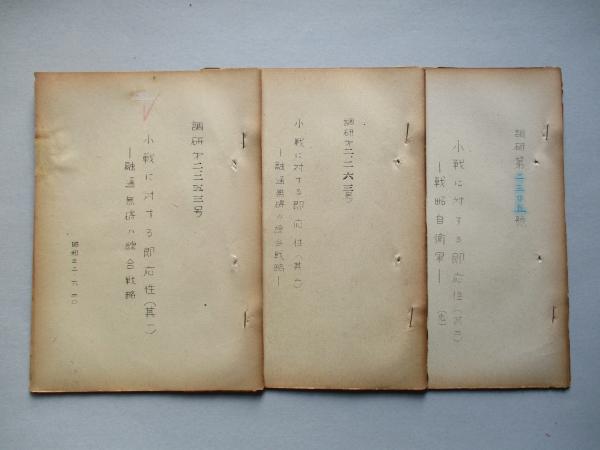 調研第二三五號
小戦に対する即応性(其三)
―戦略自衛軍―
調研オ二.二六三号
小戦に対する即応性(其二)
―融通無碍ノ綜合戦略―
調研オ二二五三号
小戦に対する即応性(其一)
―融通無碍ノ綜合戦略
昭和三二.六.二〇